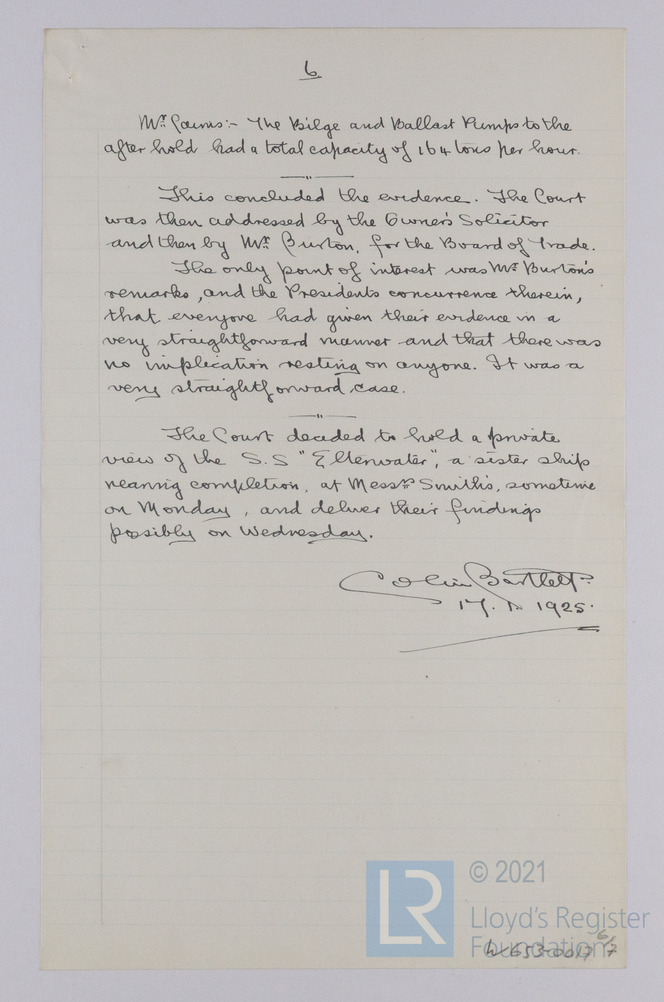 6
Mr Cairns:- The Bilge and Ballast Pumps to the
after hold had a total capacity of 164 tons per hour.
This concluded the evidence. The Court
was then addressed by the Owner's Solicitor
and then by Mr Burton, for the Board of Trade.
The only point of interest was Mr Burton's
remarks, and the Presidents concurrence therein,
that everyone had given their evidence in a
very straightforward manner and that there was
no implication resting on anyone. It was a
very straightforward case.
The Court decided to hold a private
view of the S.S "Elterwater", a sister ship
nearing completion, at Messrs Smith's, sometime
on Monday, and deliver their findings
possibly on Wednesday.
Colin Bartlett.
17. 1. 1925.
LR © 2021
Lloyd's Register
Foundation
W653-0017 6/7